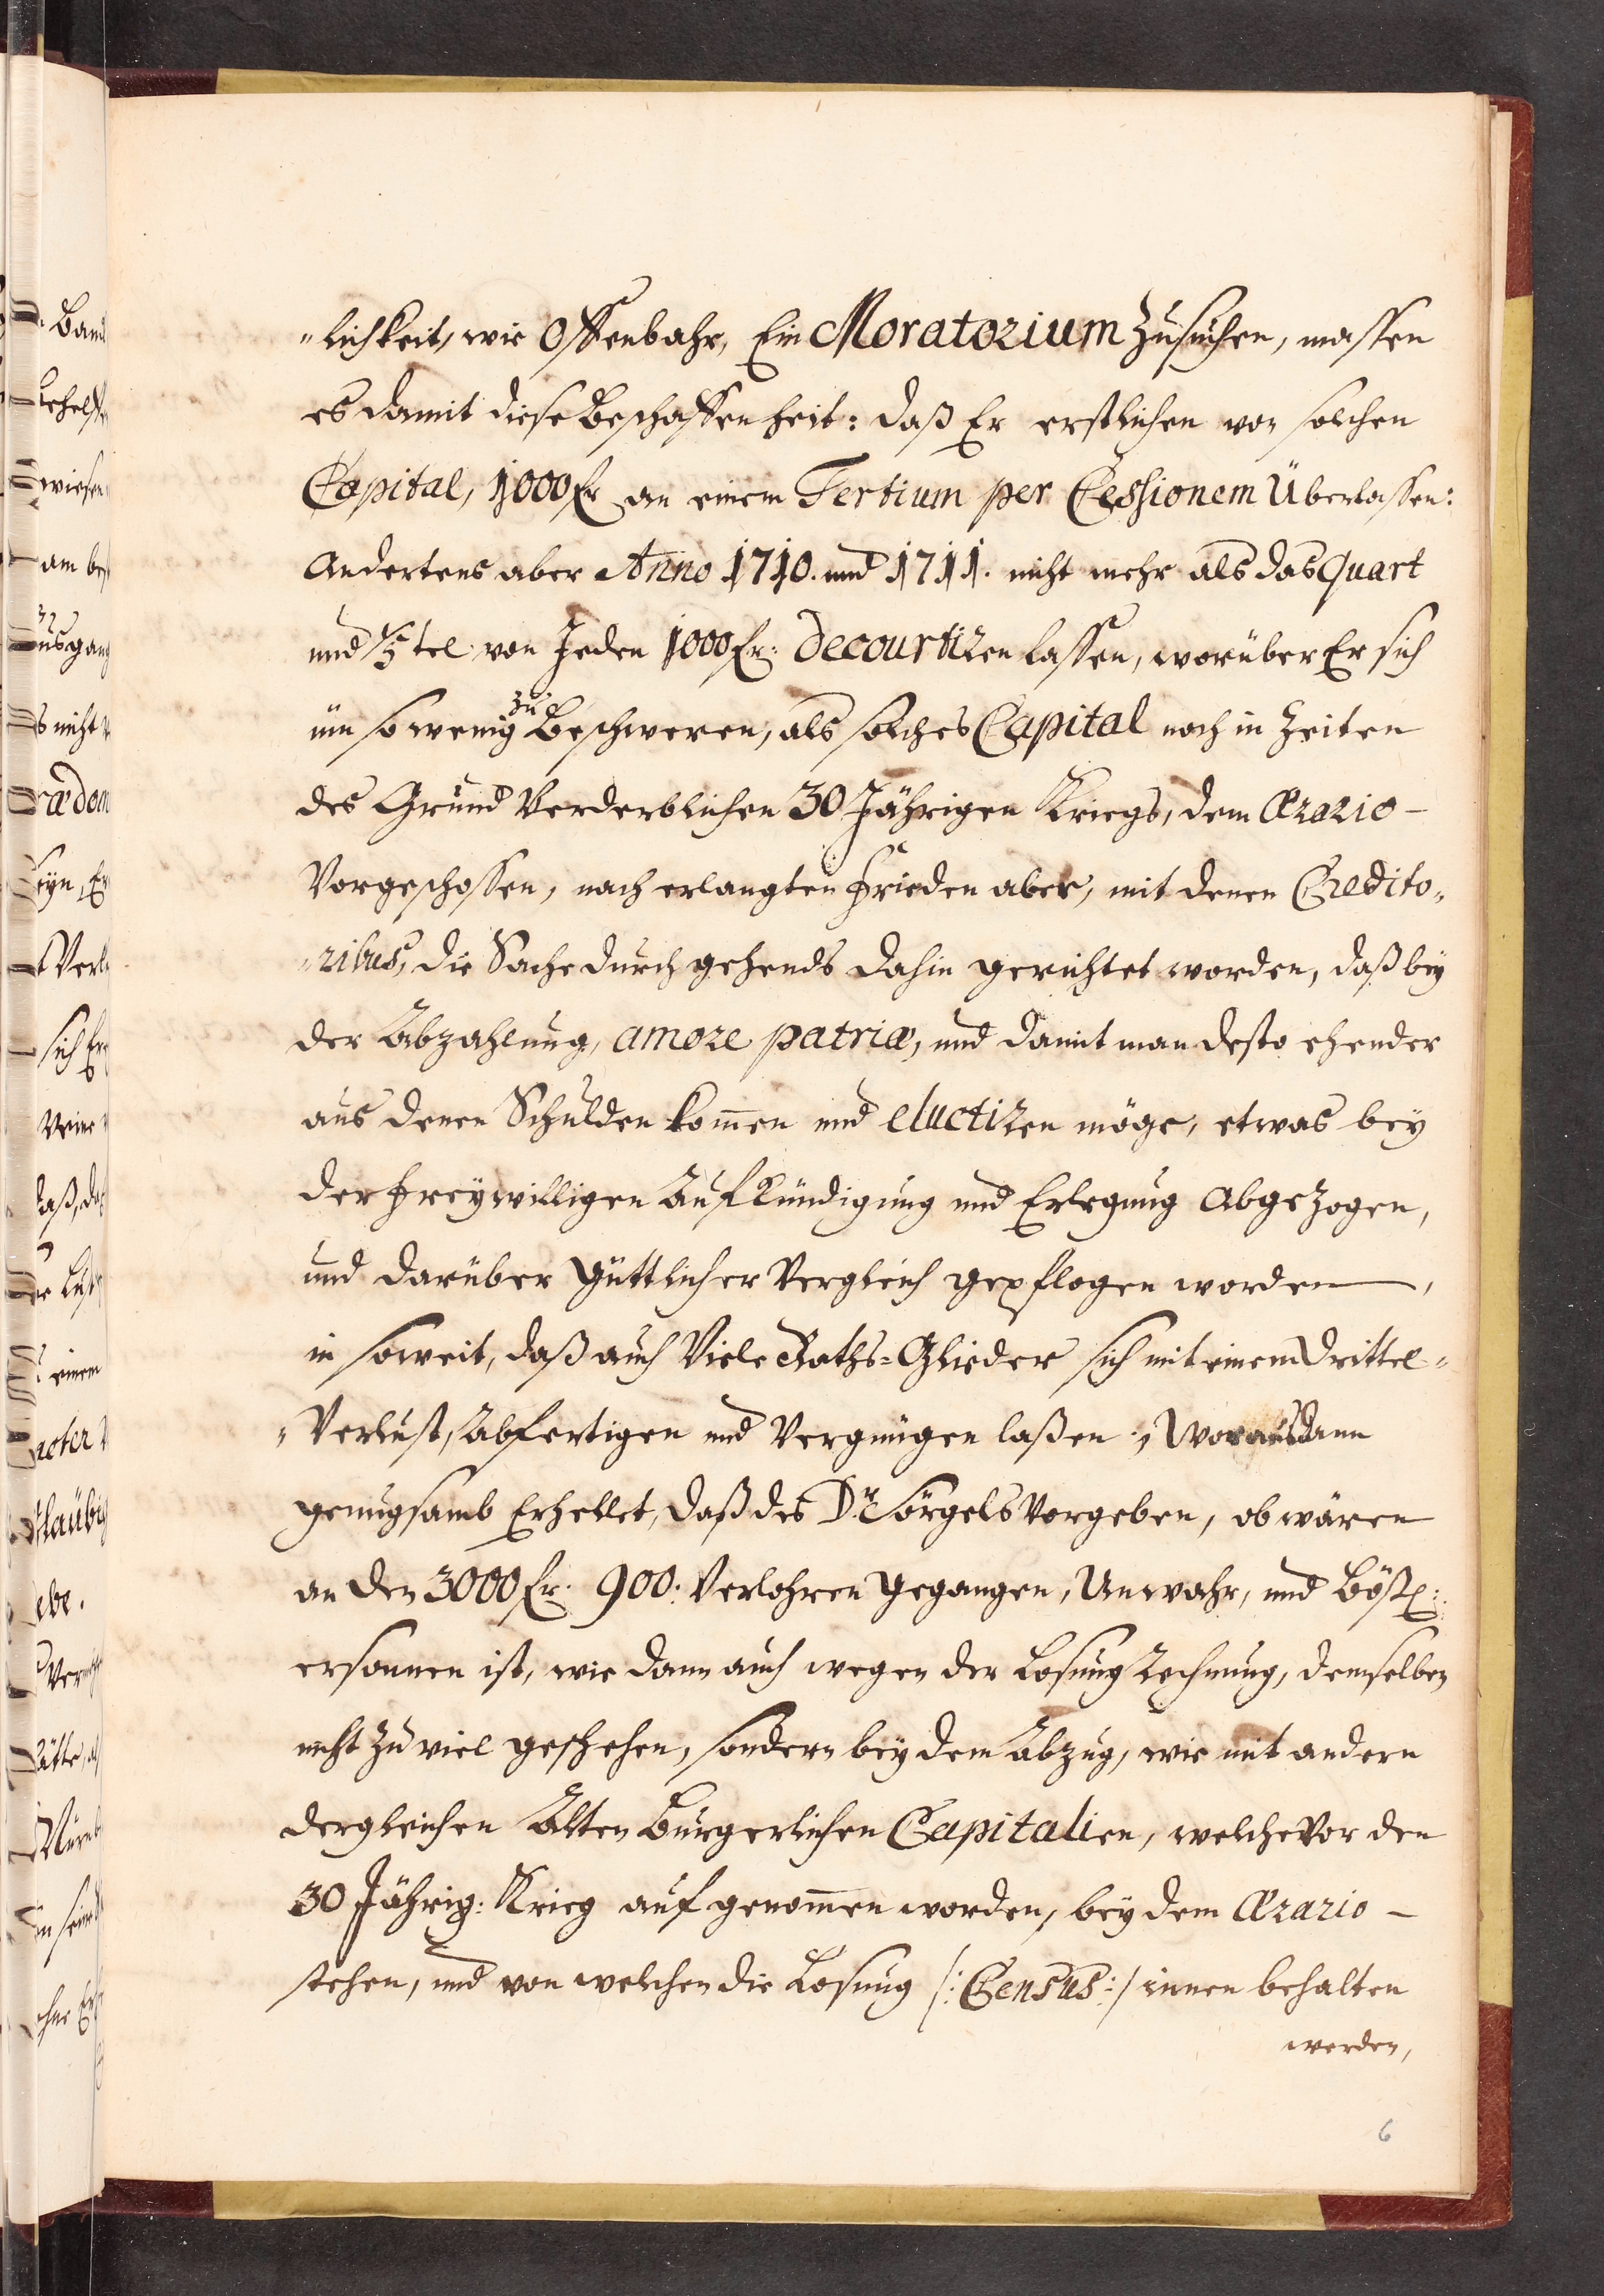 „lichkeit, wie Offenbahr, Ein Moratorium zusuchen, massen
es damit diese Beschaffenheit: daß Er erstlichen von solchen
Capital, 1000 fr an einem Tertium per Cessionem Überlassen:
Andertens aber Anno 1710. und 1711. nicht mehr als das Quart
und 1/5 tel von Jeden 1000 fr: decourtiren lassen, worüber Er sich
üm so wenig zu Beschweren, als solches Capital noch in Zeiten
des Grund Verderblichen 30 Jährigen Kriegs, dem Ærario —
Vorgeschossen, nach erlangten Frieden aber, mit denen Credito„
„ribus, die Sache durchgehends dahin gerichtet worden, daß bey
der Abzahlung, amore patriæ, und damit man desto ehender
aus denen Schulden kom̄en und eluctiren möge, etwas bey
der Freywilligen Aufkündigung und Erlegung Abgezogen,
und darüber Güttlicher Vergleich gepflogen worden —,
in soweit, daß auch Viele Raths=Glieder sich mit einem Drittel„
„Verlust, Abfertigen und Vergnügen laßen; Woraus dann
genugsamb Erhellet, daß des Dr. Sörgels Vorgeben, ob wären
an den 3000 fr. 900. Verlohren gegangen, Unwahr, und bößl:
ersonnen ist, wie dann auch wegen der Losung Rechnung, demselben
nicht zu viel geschehen, sondern bey dem Abzug, wie mit andern
dergleichen Alten Burgerlichen Capitalien, welche Vor den
30 Jährig: Krieg aufgenom̄en worden, bey dem Ærario —
stehen, und von welchen die Losung /: Census :/ innen behalten
werden,
6